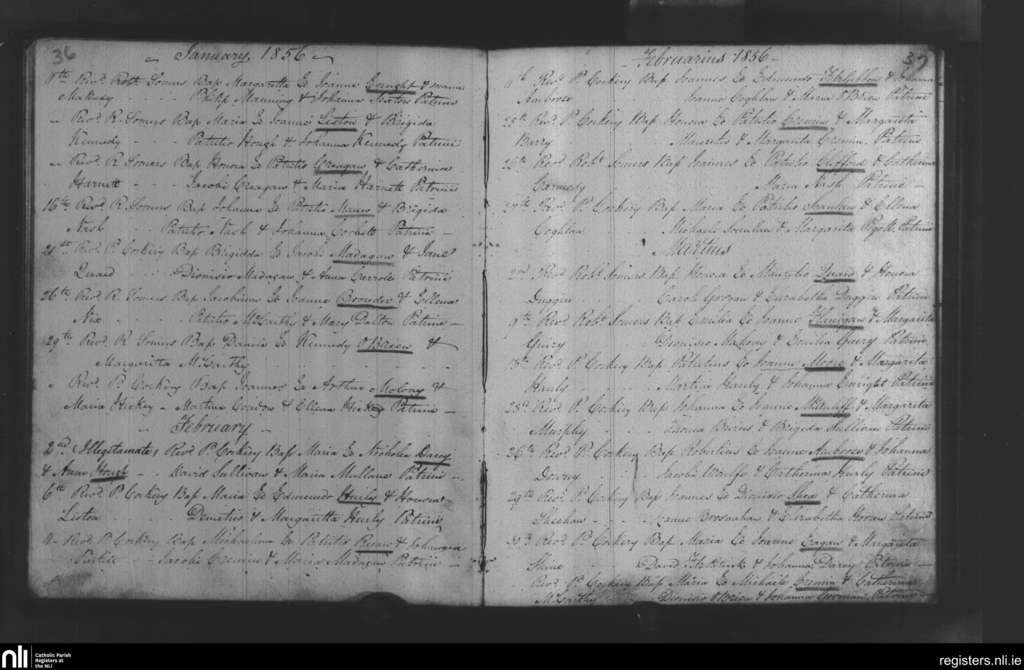 36
January 1856
11th Revd. Robt. Somers Bap Margaretta Ex Joanne Enright & Maria
Philip Manning & Johanna Patrini
" Revd. R. Somers Bap Maria Ex Joanne Liston & Brigida
Kennedy - - Patritio Hough & Johanna Kennedy Patrini
" Revd. R. Somers Bap Honora Ex Patritio Creagan & Catherina
Harnett - - - Jacobi Creagan & Maria Harnett Patrini
16th Revd. R. Somers Bap Johanna Ex Patritio & Brigida
Nash - Patritio Nash & Johanna Corbett Patrini -
21st Revd. P. Corkery Bap Brigidda Ex Jacobi Madagan & Jane
Quaid - - Dionisio Madagan & Anna Patrini
26th Revd. R. Somers Bap Jacobinus Ex Joanne Browder & Ellena
Nix - - Patritio McCarthy & Mary Dalton Patrini -
29th Revd. R. Somers Bap Daniel Ex Kennedy O'Brien &
Margaritta McCarthy - - -
" Revd. P. Corkery Bap Joannes Ex Arthur Molony &
Maria Hickey - Martino Condon & Ellena Hickey Patrini -
- February -
2nd (Illegitamate) Revd. P. Corkery Bap Maria Ex Nicholas Darcy
& Anna Hough - David Sullivan & Maria Mullane Patrini -
6th Revd. P. Corkery Bap Maria Ex Edmundo Hurly & Honora
Liston - - Demetrio & Margaritta Hurly Patrini
11 Revd. P. Corkery Bap Michaelum Ex Patritio & Johanna
- Jacobi Cremin & Maria Madagan Patrini -
37
- Februarius 1856 -
Revd. P. Corkery Bap Joannes Ex Edmundo Fitzgibbon & Johanna
Ambrose Joanne Coghlan & Maria O'Brien Patrini
25th Revd. P. Corkery Bap Honora Ex Patritio Cremin & Margarita
Barry Mauritio & Margarita Cremin Patrini
29th Revd. Robt. Somers Bap Joannes Ex Patritio Clifford & Catherina
Carmody Maria Nash Patrini -
29th Revd. P. Corkery Bap Maria Ex Patritio Scanlan & Ellena
Coghlan - Michael Scanlan & Margarita Patrini
Martius
2nd Revd. Robt. Somers Bap Honora Ex Mauritio Quaid & Honora
Duggin - - Carol Gorgan & Elizabetha Duggin Patrini
9th Revd. Robt. Somers Bap Emilia Ex Joanne Flanigan & Margarita
Guiry Dionisio Mahony & Emilia Guiry Patrini
18th Revd. P. Corkery Bap Patritius Ex Joanne Moore & Margarita
Hauly - - Martin Hauly & Johanna Enright Patrini
25th Revd. P. Corkery Bap Johanna Ex Joanne & Margarita
Murphy - - Thoma Burns & Brigida Sullivan Patrini
26th Revd. P. Corkery Bap Robertus Ex Joanne Ambrose & Johanna
Downy - Jacobi Woulfe & Catherina Hurly Patrini
29th Revd. P. Corkery Bap Joannes Ex Dionisio Shea & Catherina
Sheehan - - Joanne Brosnahan & Elizabetha Horan Patrini
30th Revd. P. Corkery Bap Maria Ex Joanne Cragan & Margarita
Shine David Fitzpatrick & Johanna Darcy Patrini -
Revd. P. Corkery Bap Maria Ex Michael Cremin & Catherina
McCarthy - Dionisio O'Brien & Johanna Patrini
nli
Catholic Parish
Registers at
the NLI
registers.nli.ie